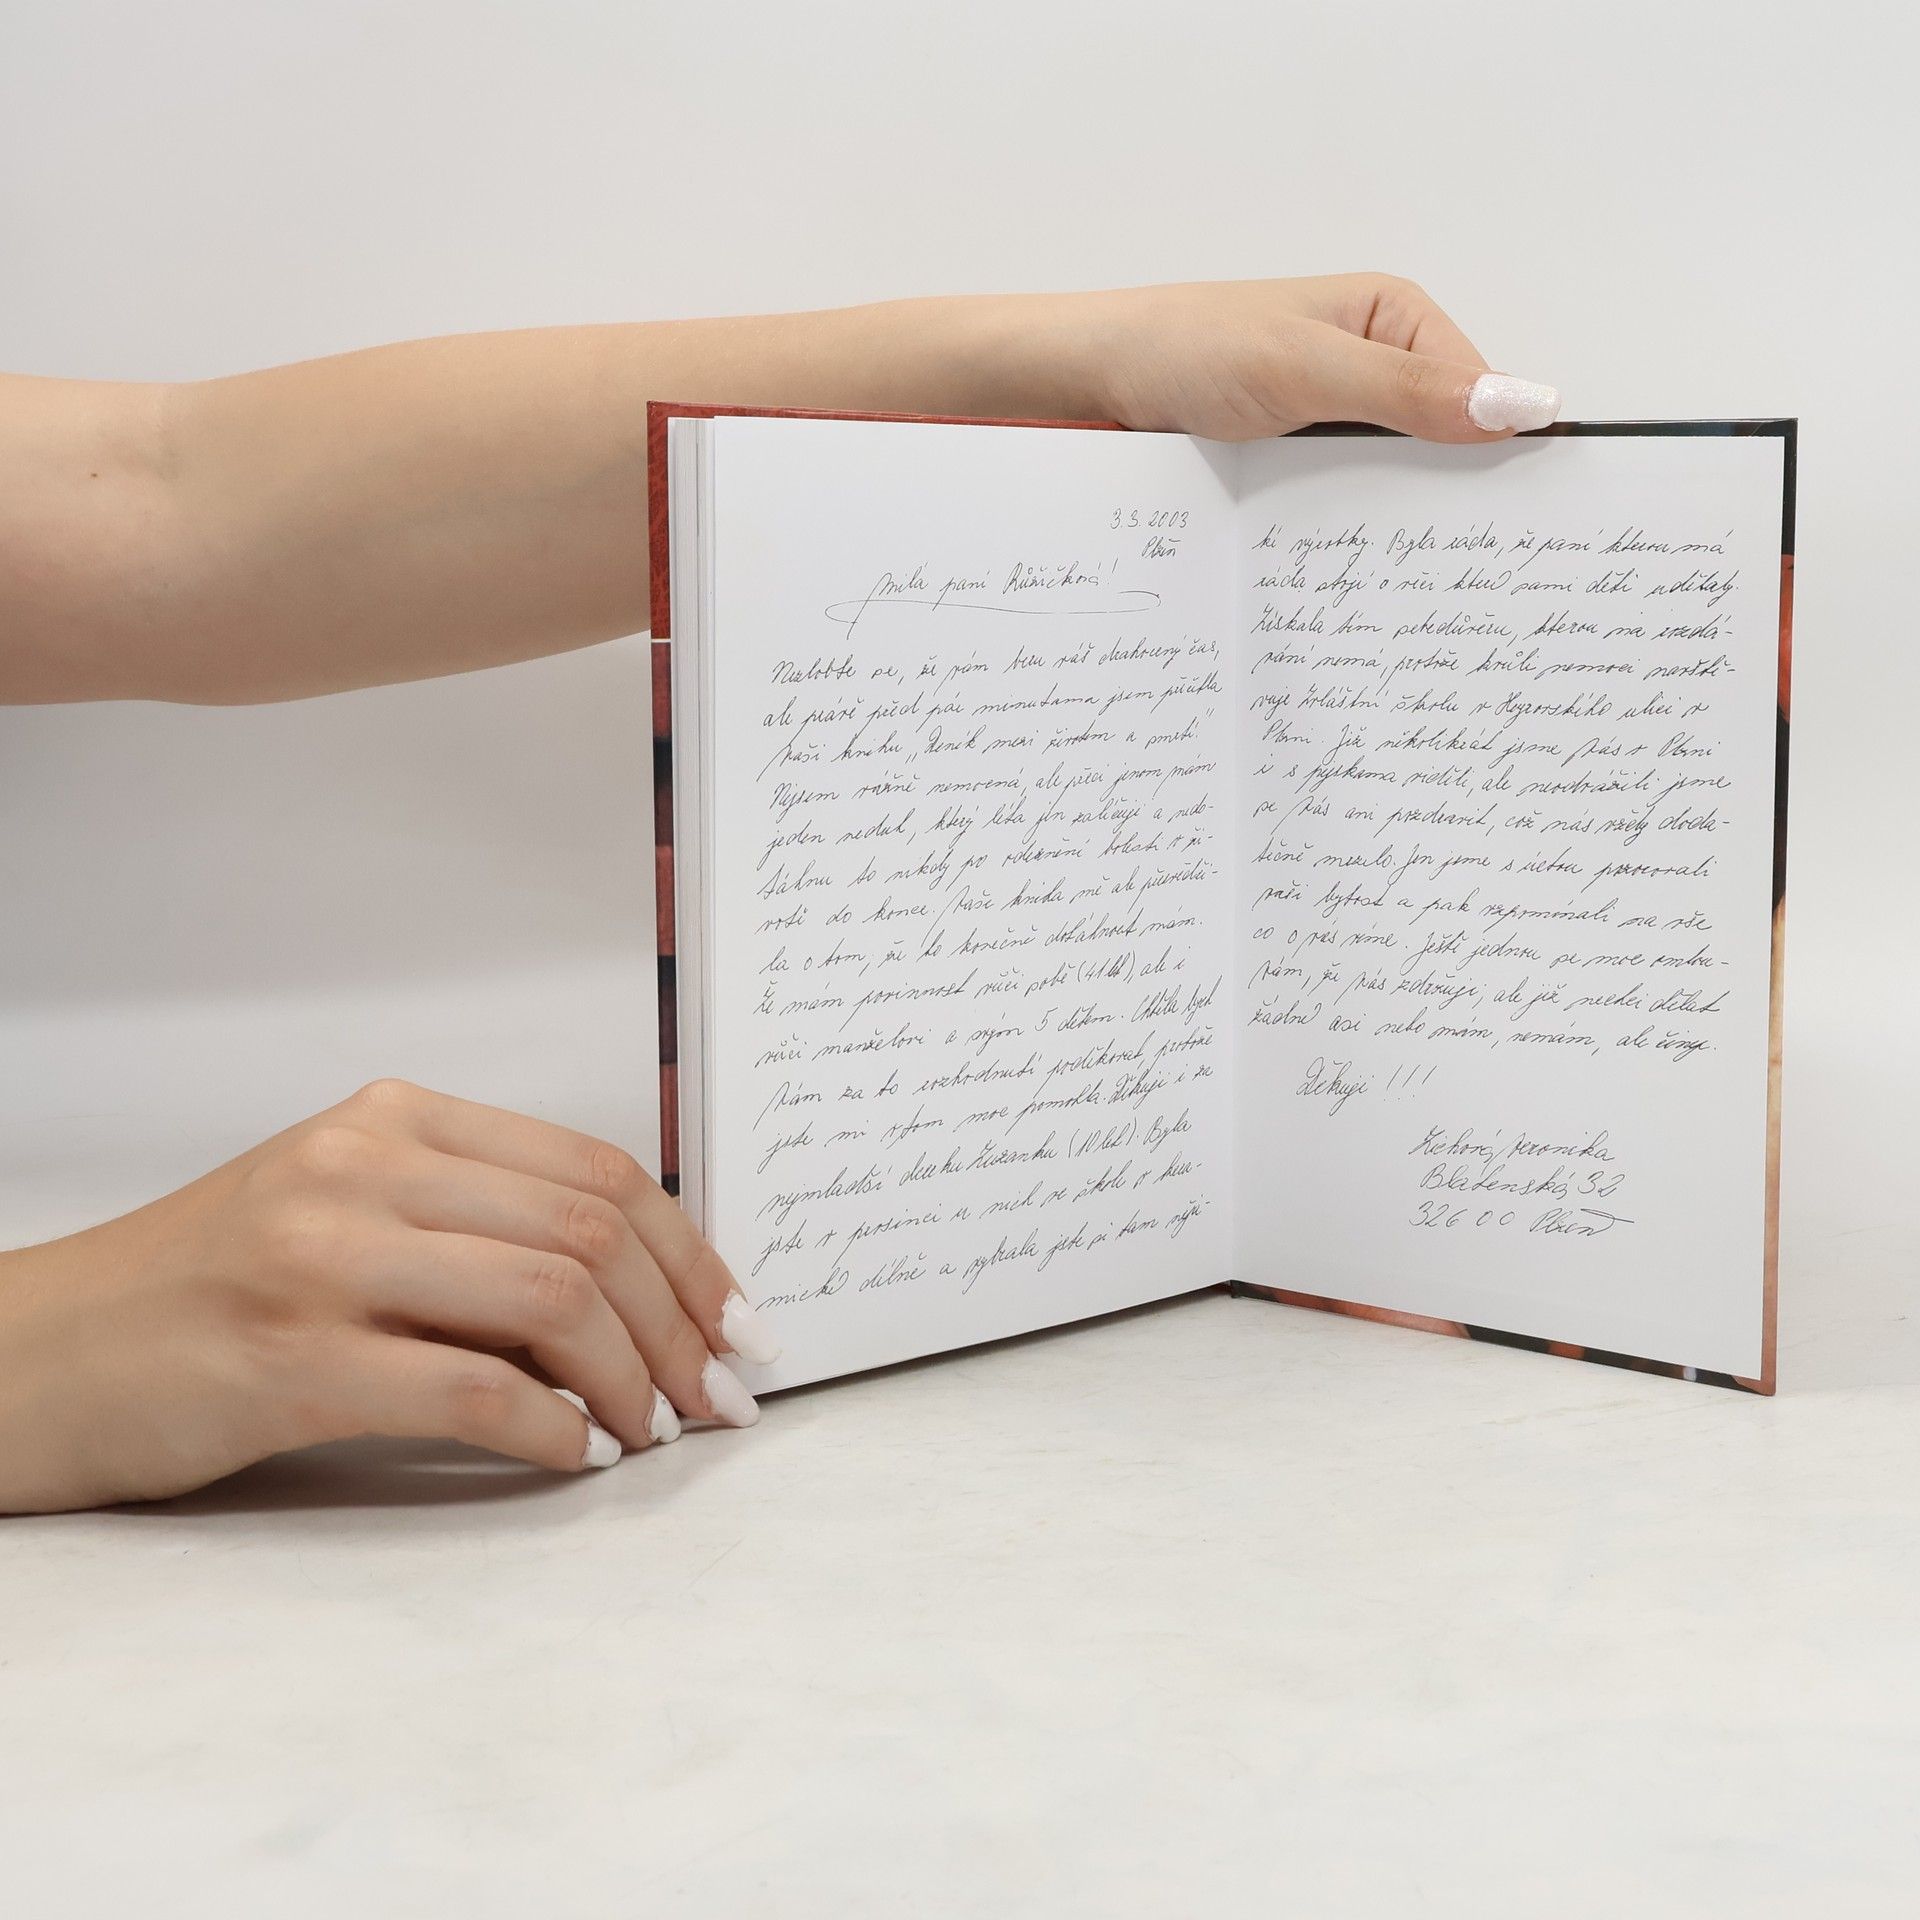 3.3.2003
Plzň
Milá paní Růžičková!
Nezlobte se, že vám beru váš drahocený čas,
ale právě před pár minutama jsem přečetla
Vaši knihu „Deník mezi životem a smrtí."
Nejsem vážně nemocná, ale přeci jenom mám
jeden neduh, který léta jen zaléčuji a nedo-
táhnu to nikdy po odeznění bolesti v ži-
votě do konce. Vaše kniha mě ale přesvědči-
la o tom, že to konečně dotáhnout mám.
Že mám povinnost vůči sobě (41 let), ale i
vůči manželovi a svým 5 dětem. Chtěla bych
Vám za to rozhodnutí poděkovat, protože
jste mi v tom moc pomohla. Děkuji i za
nejmladší dcerku Zuzanku (10 let). Byla
jste v prosinci u nich ve škole v kera-
mické dílně a vybrala jste si tam něja-
ké výrobky. Byla ráda, že paní kterou má
ráda stojí o věci které sami děti udělaly.
Získala tím sebedůvěru, kterou na rozdá-
vání nemá, protože kvůli nemoci navště-
vuje Zvláštní školu v Heyrovského ulici v
Plzni. Již několikrát jsme Vás v Plzni
i s pejskama viděli, ale neodvážili jsme
se Vás ani pozdravit, což nás vždy doda-
tečně mrzelo. Jen jsme s úctou pozorovali
vaši bytost a pak vzpomínali na vše
co o vás víme. Ještě jednou se moc omlou-
vám, že Vás zdržuji, ale již nechci dělat
žádné asi nebo mám, nemám, ale činy.
Děkuji !!!
Veronika
Blatenská 32
326 00 Plzeň